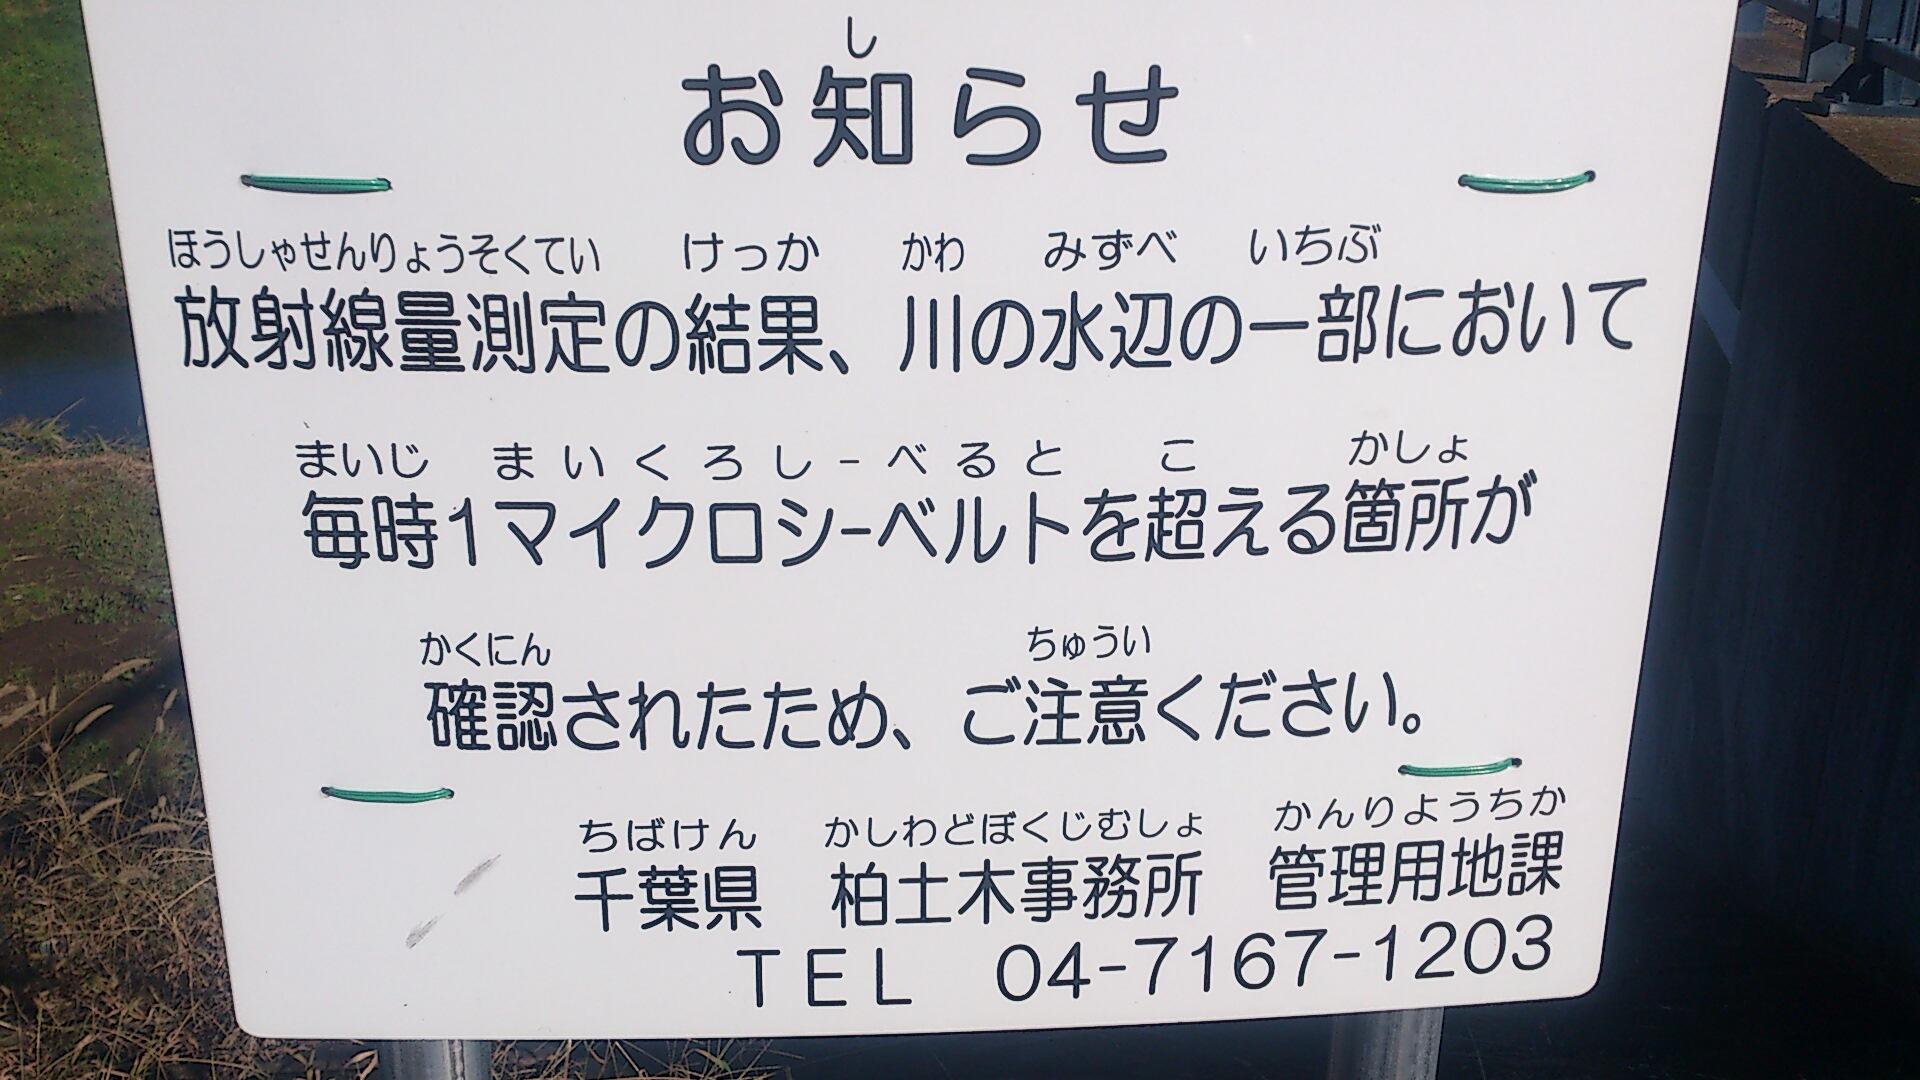 し
お知らせ
ほうしゃせんりょうそくてい けっか かわ みずべ いちぶ
放射線量測定の結果、川の水辺の一部において
まいじ まいくろしーべると こ かしょ
毎時1マイクロシーベルトを超える箇所が
かくにん ちゅうい
確認されたため、ご注意ください。
ちばけん かしわどぼくじむしょ かんりようちか
千葉県 柏土木事務所 管理用地課
TEL 04-7167-1203